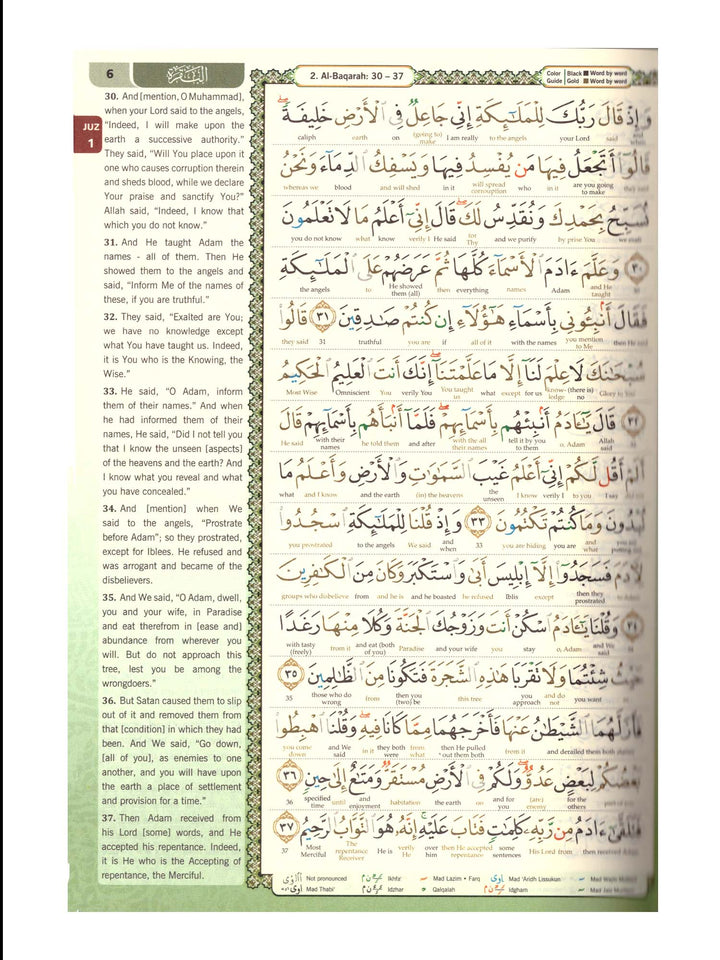 6
البقرة
2. Al-Baqarah: 30 – 37
Color Guide
Black Word by word
Gold Word by word
JUZ 1
30. And [mention, O Muhammad],
when your Lord said to the angels,
"Indeed, I will make upon the
earth a successive authority."
They said, "Will You place upon it
one who causes corruption therein
and sheds blood, while we declare
Your praise and sanctify You?"
Allah said, "Indeed, I know that
which you do not know."
31. And He taught Adam the
names - all of them. Then He
showed them to the angels and
said, "Inform Me of the names of
these, if you are truthful."
32. They said, "Exalted are You;
we have no knowledge except
what You have taught us. Indeed,
it is You who is the Knowing, the
Wise."
33. He said, "O Adam, inform
them of their names." And when
he had informed them of their
names, He said, "Did I not tell you
that I know the unseen [aspects]
of the heavens and the earth? And
I know what you reveal and what
you have concealed."
34. And [mention] when We
said to the angels, "Prostrate
before Adam"; so they prostrated,
except for Iblees. He refused and
was arrogant and became of the
disbelievers.
35. And We said, "O Adam, dwell,
you and your wife, in Paradise
and eat therefrom in [ease and]
abundance from wherever you
will. But do not approach this
tree, lest you be among the
wrongdoers."
36. But Satan caused them to slip
out of it and removed them from
that [condition] in which they had
been. And We said, "Go down,
[all of you], as enemies to one
another, and you will have upon
the earth a place of settlement
and provision for a time."
37. Then Adam received from
his Lord [some] words, and He
accepted his repentance. Indeed,
it is He who is the Accepting of
repentance, the Merciful.
وَإِذْ قَالَ رَبُّكَ لِلْمَلَٰٓئِكَةِ إِنِّي جَاعِلٌ فِي ٱلْأَرْضِ خَلِيفَةً
caliph earth on (going to) make I am really to the angels your Lord said and when
قَالُوٓا۟ أَتَجْعَلُ فِيهَا مَن يُفْسِدُ فِيهَا وَيَسْفِكُ ٱلدِّمَآءَ وَنَحْنُ
whereas we blood and will shed in it will spread corrouption who in it are you going to make they said
نُسَبِّحُ بِحَمْدِكَ وَنُقَدِّسُ لَكَ قَالَ إِنِّيٓ أَعْلَمُ مَا لَا تَعْلَمُونَ
you do not know what know verily I He said for Thy and we purify by prise You we exalt
٣٠ وَعَلَّمَ ءَادَمَ ٱلْأَسْمَآءَ كُلَّهَا ثُمَّ عَرَضَهُمْ عَلَى ٱلْمَلَٰٓئِكَةِ
the angels to He showed them (all) then everything names Adam and He taught
فَقَالَ أَنۢبِـُٔونِي بِأَسْمَآءِ هَٰٓؤُلَآءِ إِن كُنتُمْ صَٰدِقِينَ ٣١ قَالُوا۟
they said 31 truthful you are if all of it with the names you mention to Me then He said
سُبْحَٰنَكَ لَا عِلْمَ لَنَآ إِلَّا مَا عَلَّمْتَنَآ إِنَّكَ أَنتَ ٱلْعَلِيمُ ٱلْحَكِيمُ
Most Wise Omniscient You verily You You taught us what except for us know-ledge (there is) no Glory to You
٣٢ قَالَ يَٰٓـَٔادَمُ أَنۢبِئْهُم بِأَسْمَآئِهِمْ فَلَمَّآ أَنۢبَأَهُم بِأَسْمَآئِهِمْ قَالَ
He said with their names he told them and after with the all their names tell it by you to them o, Adam Allah said
أَلَمْ أَقُل لَّكُمْ إِنِّيٓ أَعْلَمُ غَيْبَ ٱلسَّمَٰوَٰتِ وَٱلْأَرْضِ وَأَعْلَمُ مَا
what and I know and the earth (in) the heavens the unseen I know verily I to you I say
تُبْدُونَ وَمَا كُنتُمْ تَكْتُمُونَ ٣٣ وَإِذْ قُلْنَا لِلْمَلَٰٓئِكَةِ ٱسْجُدُوا۟
you prostrated to the angels We said and when 33 you are hiding you are and what
لِءَادَمَ فَسَجَدُوٓا۟ إِلَّآ إِبْلِيسَ أَبَىٰ وَٱسْتَكْبَرَ وَكَانَ مِنَ ٱلْكَٰفِرِينَ
groups who disbelieve from and he is and he boasted he refused Iblis except then they prostrated to Adam
٣٤ وَقُلْنَا يَٰٓـَٔادَمُ ٱسْكُنْ أَنتَ وَزَوْجُكَ ٱلْجَنَّةَ وَكُلَا مِنْهَا رَغَدًا
with tasty (freely) from it and eat (both of you) Paradise and your wife you stay o, Adam and We said
حَيْثُ شِئْتُمَا وَلَا تَقْرَبَا هَٰذِهِ ٱلشَّجَرَةَ فَتَكُونَا مِنَ ٱلظَّٰلِمِينَ ٣٥
35 those who do wrong from then you (two) be tree this you approach and do not you want
فَأَزَلَّهُمَا ٱلشَّيْطَٰنُ عَنْهَا فَأَخْرَجَهُمَا مِمَّا كَانَا فِيهِ وَقُلْنَا ٱهْبِطُوا۟
you come down and We said in it they both were from what then He pulled out them both from it and derailed them both
بَعْضُكُمْ لِبَعْضٍ عَدُوٌّ وَلَكُمْ فِي ٱلْأَرْضِ مُسْتَقَرٌّ وَمَتَٰعٌ إِلَىٰ حِينٍ ٣٦
36 specified time until and enjoyment habitation the earth on and for you (are) enemy for the others part of you
فَتَلَقَّىٰٓ ءَادَمُ مِن رَّبِّهِۦ كَلِمَٰتٍ فَتَابَ عَلَيْهِ إِنَّهُۥ هُوَ ٱلتَّوَّابُ ٱلرَّحِيمُ ٣٧
37 Most Merciful The repentance Receiver He is verily He over him then He accepted repentance some sentences His Lord from then received Adam
Not pronounced Ikhfa' Mad Lazim • Farq Mad 'Aridh Lissukun Mad Wajib Muttasil
Mad Thabi'i Idzhar Qalqalah Idgham Mad Jaiz Munfasil